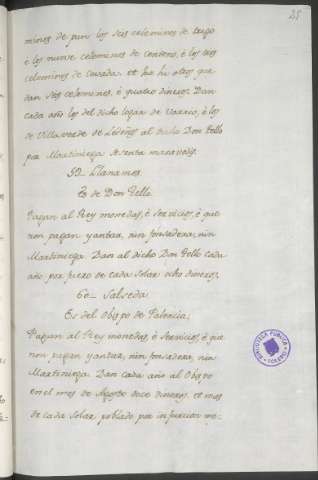 25
mines de pan los seis celemines de trigo
è los nueve celemines de centeno, è los seis
celemines de cevada. et ho hi otros que
dan seis celemines, è quatro dineros. Dan
cada año los del dicho logar de Varrio, è los
de Villaverde de Ledeños al dicho Don Tello
por Martiniega setenta maravedis.
59_ Llanames.
Es de Don Tello.
Pagan al Rey monedas, è servicios, è que
non pagan yantar, nin fonsadera, nin
Martiniega. Dan al dicho Don Tello cada
año por fuero de cada solar ocho dineros.
60_ Salseda.
Es del Obispo de Palencia.
Pagan al Rey monedas, è servicios, è que
non pagan yantar, nin fonsadera, nin
Martiniega. Dan cada año al Obispo
en el mes de Agosto doce dineros. et mas
de cada solar poblado por infurcion me-
BIBLIOTECA PUBLICA
TOLEDO